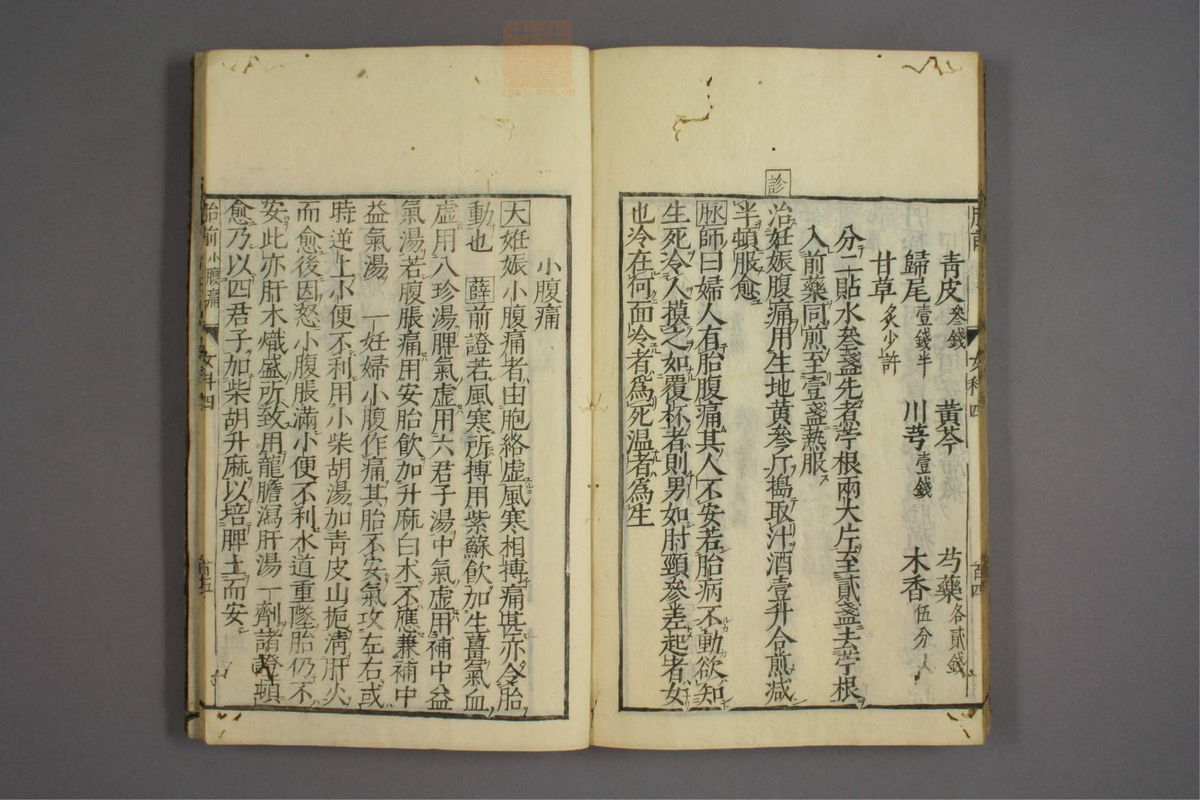 青皮叄錢　黃芩　芍藥各貳錢
歸尾壹錢半　川芎壹錢　木香伍分
甘草炙少許
分二貼水叄盞先煮苧根兩大片至貳盞去苧根
入前藥同煎至壹盞熱服
診
治妊娠腹痛用生地黃叄斤搗取汁酒壹升合煎減
半頓服愈
脉師曰婦人有胎腹痛其人不安若胎病不動欲知
生死冷人摸之如覆杯者則男如肘頸參差起者女
也冷在何面冷者為死温者為生
女科四
小腹痛
大妊娠小腹痛者由胞絡虛風寒相搏痛甚亦令胎
動也　薛前證若風寒所搏用紫蘇飲加生薑氣血
虛用八珍湯脾氣虛用六君子湯中氣虛用補中益
氣湯若腹脹痛用安胎飲加升麻白朮不應兼補中
益氣湯　一妊婦小腹作痛其胎不安氣攻左右或
時逆上小便不利用小柴胡湯加青皮山梔清肝火
而愈後因怒小腹脹滿小便不利水道重墜胎仍不
安此亦肝木熾盛所致用龍膽瀉肝湯一劑諸證頓
愈乃以四君子加柴胡升麻以培脾土而安
胎前小腹痛　女科四　百五